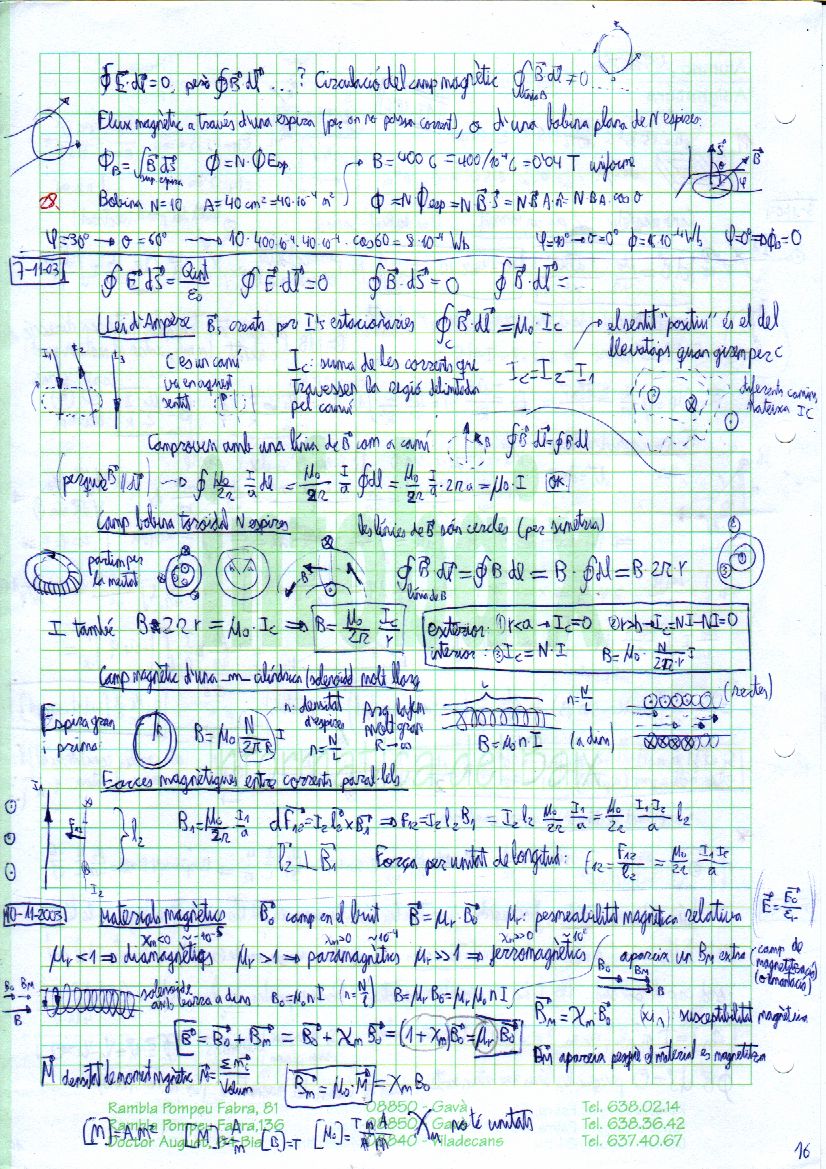 ∮E⃗·dl⃗=0, però ∮B⃗·dl⃗ ...? Circulació del camp magnètic ∮B⃗·dl⃗ ≠ 0
línia B
Flux magnètic a través d'una espira (per on no passa corrent), o d'una bobina plana de N espires:
Φ_B = ∫B⃗·dS⃗ Φ = N·Φ_Esp B = 400 G = 400/10⁴ G = 0'04 T uniforme
sup. espira
28. Bobina N=10 A=40 cm² = 40·10⁻⁴ m² Φ = NΦ_esp = N B⃗·S⃗ = N B⃗ A·n⃗ = N B A·cos σ
φ=30° → σ=60° → 10·400·10⁻⁴·40·10⁻⁴·cos60 = 8·10⁻⁴ Wb φ=90° → σ=0° φ=0° ⇒ Φ_B=0
7-11-03
∮E⃗·dS⃗ = Q_int/ε₀ ∮E⃗·dl⃗ = 0 ∮B⃗·dS⃗ = 0 ∮B⃗·dl⃗ =
Llei d'Ampère B⃗, creats per I's estacionàries ∮_C B⃗·dl⃗ = μ₀·I_C el sentit "positiu" és el del
llevataps quan girem per C
I₁ I₂ I₃ C és un camí
va en aquest
sentit
I_C: suma de les corrents que
travessen la regió delimitada
pel camí
I_C = I₂ − I₁
diferents camins,
mateixa I_C
Comprovem amb una línia de B⃗ com a camí ∮B⃗·dl⃗ = ∮B dl
(perquè B⃗ ∥ dl⃗) → ∮ μ₀/2π I/a dl = μ₀/2π I/a ∮dl = μ₀/2π I/a · 2πa = μ₀·I OK
Camp bobina toroïdal N espires les línies de B⃗ són cercles (per simetria)
partim per
la meitat
∮B⃗·dl⃗ = ∮B dl = B·∮dl = B·2π·r
línia de B
I també B·2πr = μ₀·I_C ⇒ B = μ₀/2π I_C/r
exterior: ① r<a → I_C=0 ② r>b → I_C=NI−NI=0
interior: ③ I_C=N·I B=μ₀·N/2π·r I
Camp magnètic d'una cilíndrica (solenoid) molt llarg
Espira gran
i prima:
R
B = μ₀ N/2πR I
n: densitat
d'espires
n = N/L
Ara la fem
molt gran
R→∞
L
n = N/L
B = μ₀ n I (a dins)
(rectes)
Forces magnètiques entre corrents paral·lels
I₁ F₁₂ I₂ l₂
B₁ = μ₀/2π I₁/a dF⃗₁₂ = I₂ l⃗₂ × B⃗₁ ⇒ F₁₂ = I₂ l₂ B₁ = I₂ l₂ μ₀/2π I₁/a = μ₀/2π I₁I₂/a l₂
l⃗₂ ⊥ B⃗₁ Força per unitat de longitud: f₁₂ = F₁₂/l₂ = μ₀/2π I₁I₂/a
10-11-2003
Materials magnètics B⃗₀ camp en el buit B⃗ = μr·B⃗₀ μr: permeabilitat magnètica relativa (E⃗ = E⃗₀/εr)
χm<0 ~10⁻⁵ χm>0 ~10⁻⁴ χm>>0
μr<1 ⇒ diamagnètics μr>1 ⇒ paramagnètics μr>>1 ⇒ ferromagnètics apareix un Bm extra (camp de
magnetització)
B₀ Bm B
solenoide
amb barra a dins B₀ = μ₀ n I (n = N/L) B = μr B₀ = μr μ₀ n I
B⃗m = χm·B⃗₀ susceptibilitat magnètica
B⃗ = B⃗₀ + B⃗m = B⃗₀ + χm B⃗₀ = (1+χm)B⃗₀ = μr B⃗₀
B⃗m apareix perquè el material es magnetitza
M⃗ densitat de moment magnètic M⃗ = Σm⃗ᵢ/Volum
B⃗m = μ₀·M⃗ = χm B₀
Rambla Pompeu Fabra, 81 08850 - Gavà Tel. 638.02.14
Rambla Pompeu Fabra, 136 08850 - Gavà Tel. 638.36.42
Doctor August, Bis 08840 - Viladecans Tel. 637.40.67
[m] = A m² [M] = A/m [B] = T χm no té unitats
16